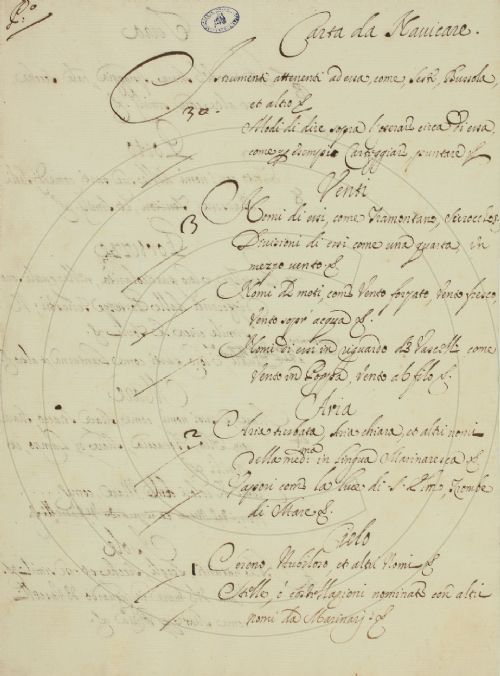 P.º
Carta da Navicare.
Istrumenti attenenti ad essa, come, Sesti, Bussola,
et altro &.
3a
Modi di dire sopra l'operare circa di essa,
come p esempio Carteggiare puntare &.
Venti
B
Nomi di essi, come Tramontano, Scirocco &.
Divisioni di essi come una quarta, un
mezzo vento &.
Nomi di moti, come Vento forzato, vento fresco
Vento sopr' acqua &.
Nomi di essi in riguardo de Vascelli come
Vento in Poppa, vento al filo &.
Aria
2
Aria turbata, Aria chiara, et altri nomi
della med.ma in lingua Marinaresca &.
Vapori come la Luce di S. Elmo, Trombe
di Mare &.
Cielo
1
Sereno, Nuvoloso, et altri Nomi &.
Stelle è costellazioni nominate con altri
nomi da Marinarj. &